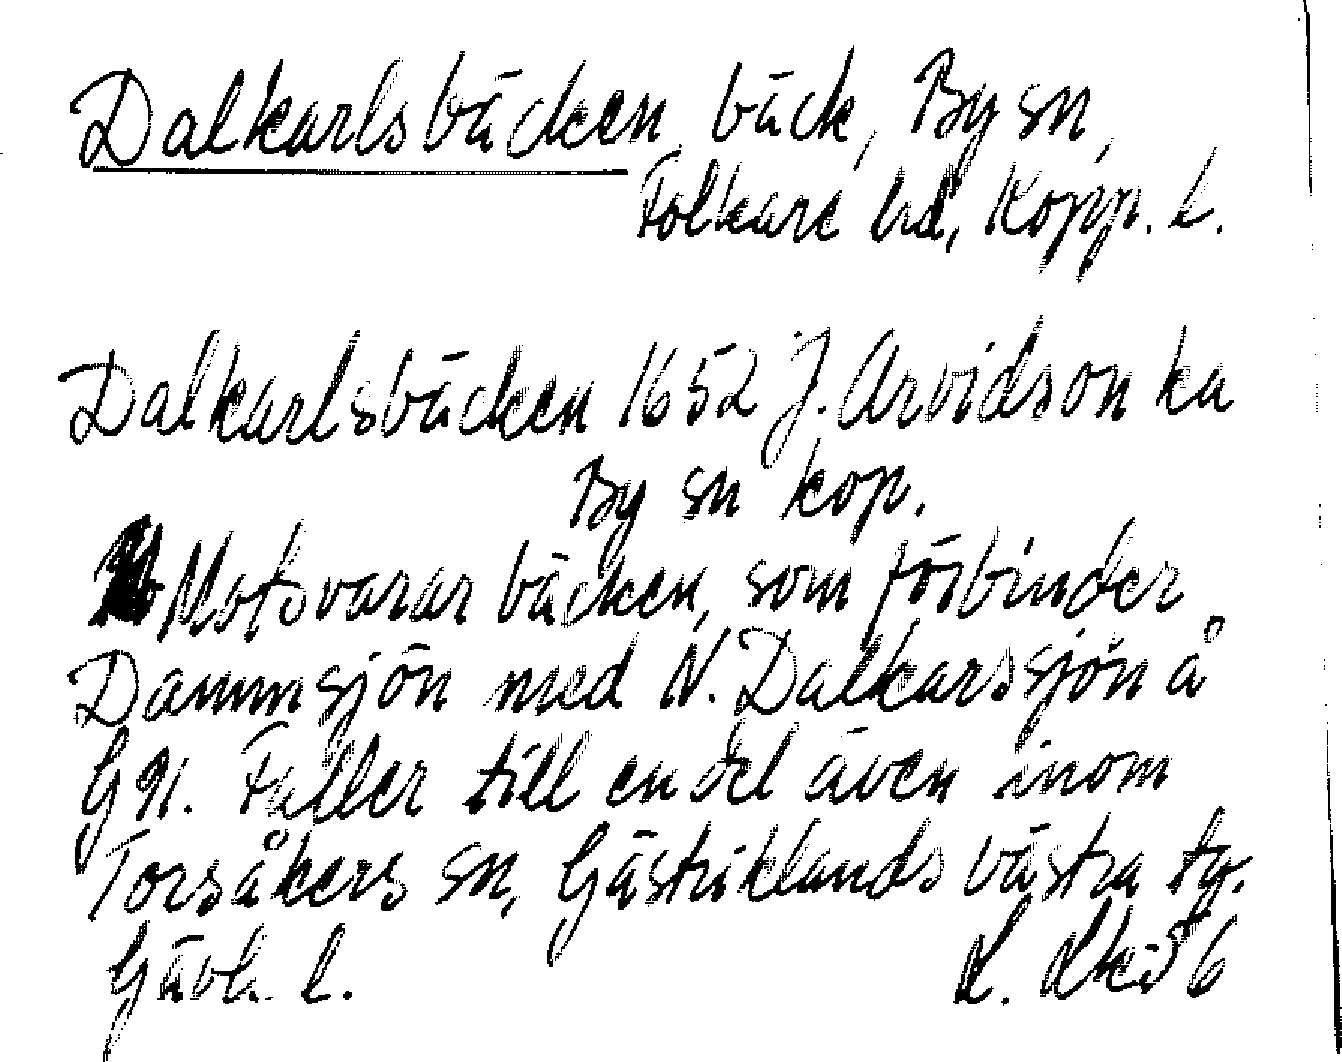 Dalkarlsbäcken, bäck, By sn,
Folkare hd, Kopp. l.
Dalkarlsbäcken 1652 J. Arvidson ka
By sn kop.
Motsvarar bäcken, som förbinder
Dammsjön med N. Dalkarssjön å
GK. Faller till en del även inom
Torsåkers sn, Gästriklands västra tg.
Gävl. l. L.